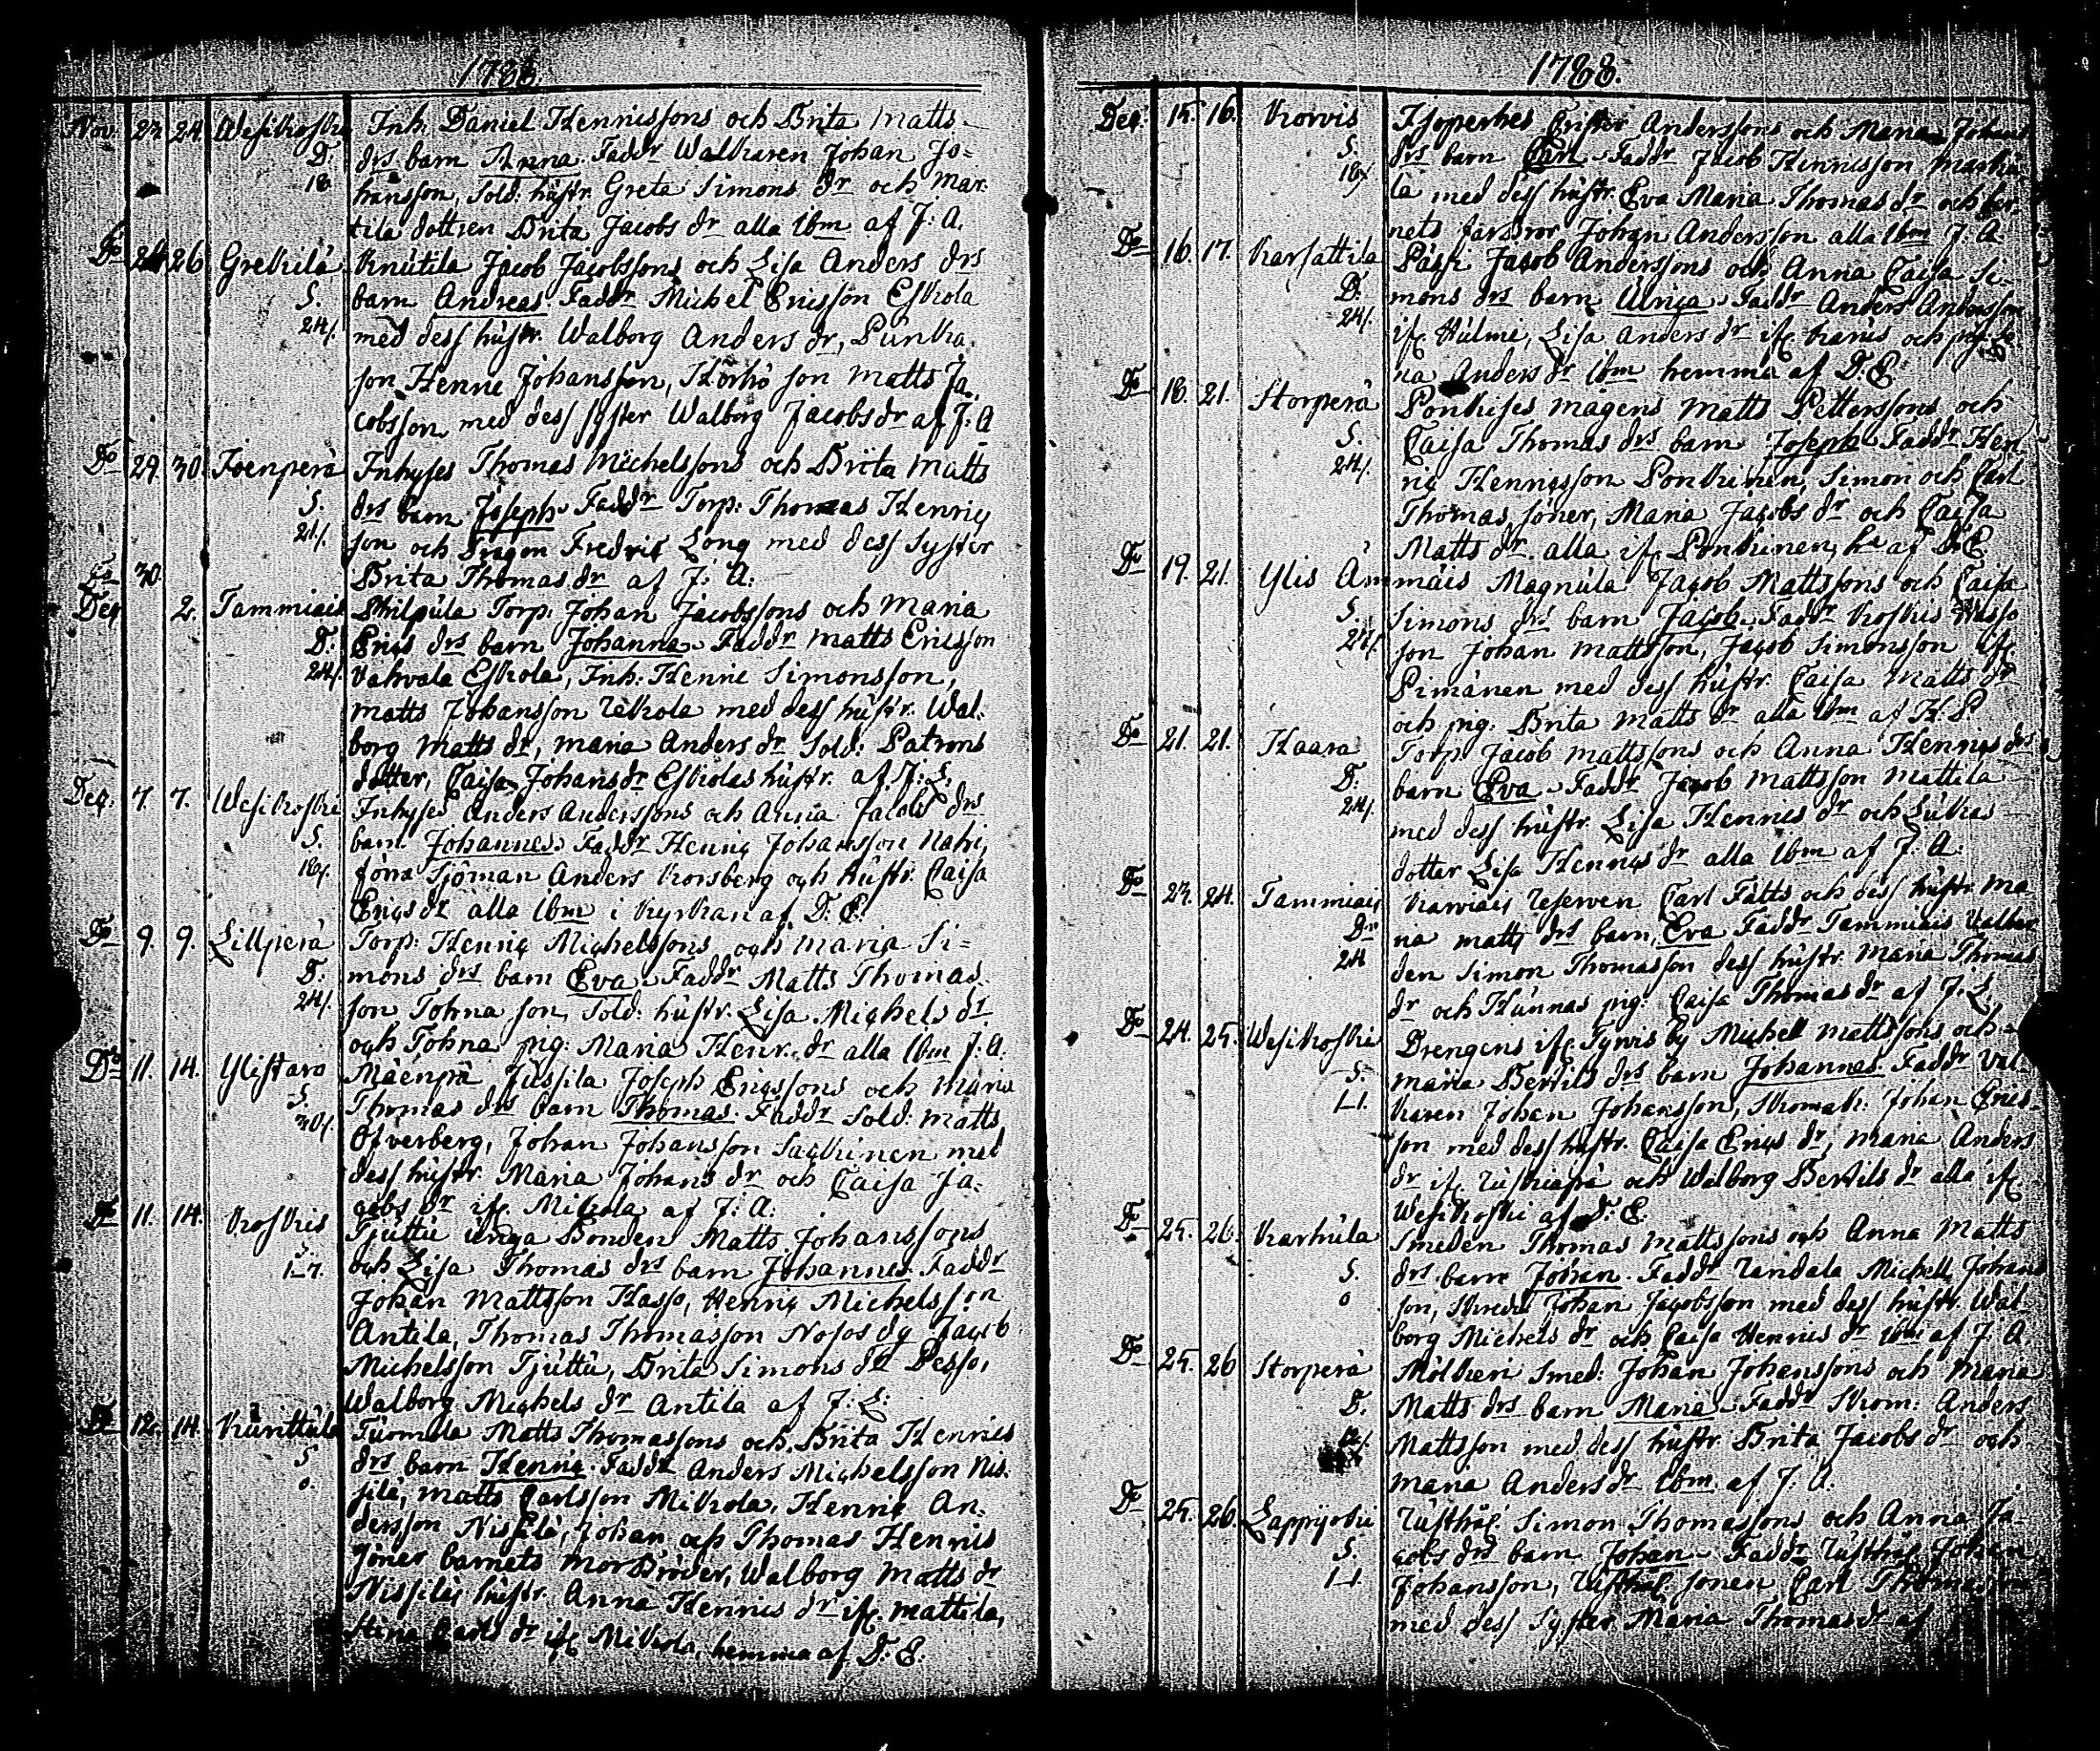 1788.
Nov. 23. 24. Wesikoski Inh. Daniel Hennissons och Brita Matts
D. drs barn Anna. Faddr Walkaren Johan Jo=
18 hansson, Sold: hustr. Greta Simons dr och Mar=
tila dottren Brita Jacobs dr alla ibm af J: A.
Do 24 26 Grekilä Knutila Jacob Jacobssons och Lisa Anders drs
S. barn Andreas Faddr Michel Ericsson Eskola
24/. med dess hustr. Walborg Anders dr, Punka
son Henric Johansson, Korho son Matts Ja=
cobsson med dess syster Walborg Jacobsdr af J: A
Do 29. 30. Isenperä Inhyses Thomas Michelssons och Brita Matts
S. drs barn Joseph Faddr Torp: Thomas Henric
21/. son och Fredric Long med dess Syster
Do 30. Brita Thomas dr af J: A.
Dec 2. Tammiais Torp: Johan Jacobssons och Maria
D. Erics drs barn Johanna Faddr Matts Ericsson
24/. Vahvala Eskola, Inh: Henric Simonsson,
Matts Johansson med dess hustr. Wal=
borg Matts dr, Maria Anders dr Sold: Patrons
dotter, Caisa Johansdr Eskolas hustr. af J: L.
Dec. 7. 7. Wesikoski Inhyses Anders Anderssons och Anna Jacobs drs
S. barn Johannes Faddr Henric Johansson
18/. Sjöman Anders Korsberg och hustr. Caisa
Erics dr alla ibm i kyrkan af D: E.
Do 9. 9. Lillperä Torp: Henric Michelssons och Maria Si=
D. mons drs barn Eva. Faddr Matts Thomas
24/. son Tohna son, Sold: hustr. Lisa Michels dr
och Tohna pig: Maria Henr. dr alla ibm J: A.
Do 11. 14. Ylistaro Mäenpä Jussila Joseph Ericssons och Maria
S. Thomas drs barn Thomas. Faddr Sold: Matts
30/. Öfverberg, Johan Johansson med
dess hustr. Maria Johans dr och Caisa Ja=
cobs dr if. Mikola af J: A:
Do 11. 14. Koskis Tjuttu unga Bonden Matts Johanssons
S. och Lisa Thomas drs barn Johannes. Faddr
1-7. Johan Mattsson Hasso, Henric Michelsson
Antila, Thomas Thomasson Jacob
Michelsson Tjuttu, Brita Simons dr Pesso,
Walborg Michels dr Antila af J: L:
Do 12. 14. Kurittula Tuomola Matts Thomassons och Brita Hennics
S drs barn Henric. Faddr Anders Michelsson Nis=
o. silä, Matts Carlsson Mikola, Henric An=
dersson Nissilä, Johan och Thomas Hennics
söner barnets morbröder, Walborg Matts dr
Nissiläs hustr. Anna Hennics dr if. Mattila,
Stina Carls dr if Mikola, hemma af D: E.
1788.
Dec. 15. 16. Korvis Anderssons och Maria Johans
S. drs barn Carl. Faddr Jacob Hennicsson
18/. la med dess hustr. Eva Maria Thomas dr och bar=
nets farbror Johan Andersson alla ibm J: A
Do 16. 17. Karsattila Jacob Anderssons och Anna Caisa Si=
D. mons drs barn Ulrica. Faddr Anders Andersson
24/. if. Hulmi, Lisa Anders dr if.
na Anders dr ibm hemma af D. E.
Do 18. 21. Storperä Ponkises mågens Matts Petterssons och
S. Caisa Thomas drs barn Joseph Faddr Hen
24/. ric Hennicsson Ponkinen, Simon och Carl
Thomas söner, Maria Jacobs dr och Caisa
Matts dr alla if Ponkinen, af D. E
Do 19. 21. Ylis Ämmäis Magnula Jacob Mattssons och Caisa
S. Simons drs barn Jacob. Faddr Koskis Hasso
24/. son Johan Mattsson, Jacob Simonsson if.
Pimänen med dess hustr. Caisa Matts dr
och pig: Brita Matts dr alla ibm af H. P.
Do 21. 21. Haara Torp. Jacob Mattssons och Anna Hennics drs
D. barn Eva. Faddr Jacob Mattsson Mattila
24/. med dess hustr. Lisa Hennics dr och Lukas
dotter Lisa Hennics dr alla ibm af J: A:
Do 23. 24. Tammiais Reserven Carl Fälts och dess hustr. Ma=
Dr ria Matts drs barn, Eva Faddr Tammiais
24 den Simon Thomasson dess hustr. Maria Thomas
dr och Hunnas pig: Caisa Thomas dr af J. L.
Do 24. 25. Wesikoski Drengens if. by Michell Mattssons och
S. Maria Bertils drs barn Johannes. Faddr Val=
1-1. karen Johan Johansson, Skomak: Johan Erics=
son med dess hustr. Caisa Erics dr, Maria Anders
dr if. och Walborg Bertils dr alla if.
Wesikoski af D: E.
Do 25. 26. Karhula Smeden Thomas Mattssons och Anna Matts
S. drs barn Johan. Faddr Randala Michell Johans
o son, Skredd. Johan Jacobsson med dess hustr. Wal
borg Michels dr och Caisa Hennics dr ibm af J. A
Do 25. 26 Storperä Mölkeri Smed: Johan Johanssons och Maria
D. Matts drs barn Maria. Faddr Skom: Anders
Mattsson med dess hustr. Brita Jacobs dr och
Maria Anders dr ibm. af J: A:
Do 25. 26. Lappijoki Rusthål. Simon Thomassons och Anna Ja=
S. cobs drs barn Johan. Faddr Rusthål Johan
1-1. Johansson, Rusthål. sonen Carl Thomasson
med dess Syster Maria Thomas dr af